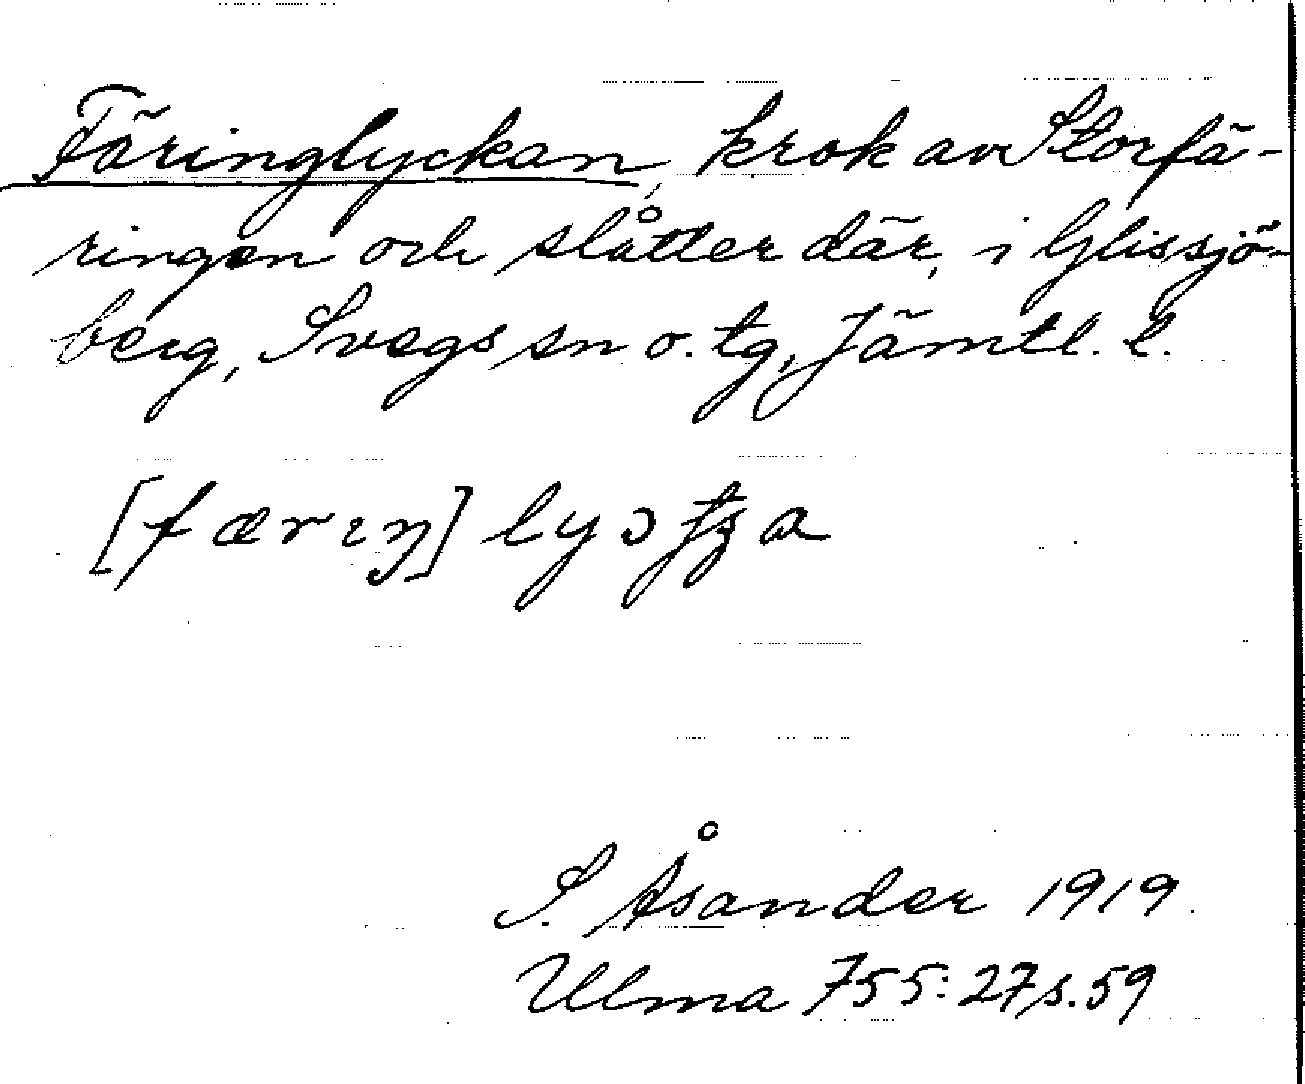 Färinglyckan, krok av Storfä-
ringen och slåtter där, i Glissjö-
berg, Svegs sn o. tg, Jämtl. l.
[færıŋ] lyɔtʂa
S. Åsander 1919
Ulma 755:27 s. 59